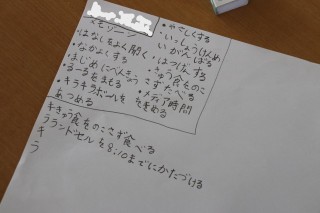 くもゾーン
・はなしをよく聞く
・なかよくする
・まじめにべんきょう
・るーるをまもる
・キラキラボールを
あつめる
・やさしくする
・いっしょうけんめ
いがんばる
・はっぴょうする
・きゅう食をのこ
さずたべる
・メディア時間
を決める
キきゅう食をのこさず食べる
ラランドセルを8:10までにかたづける
キ
ラ